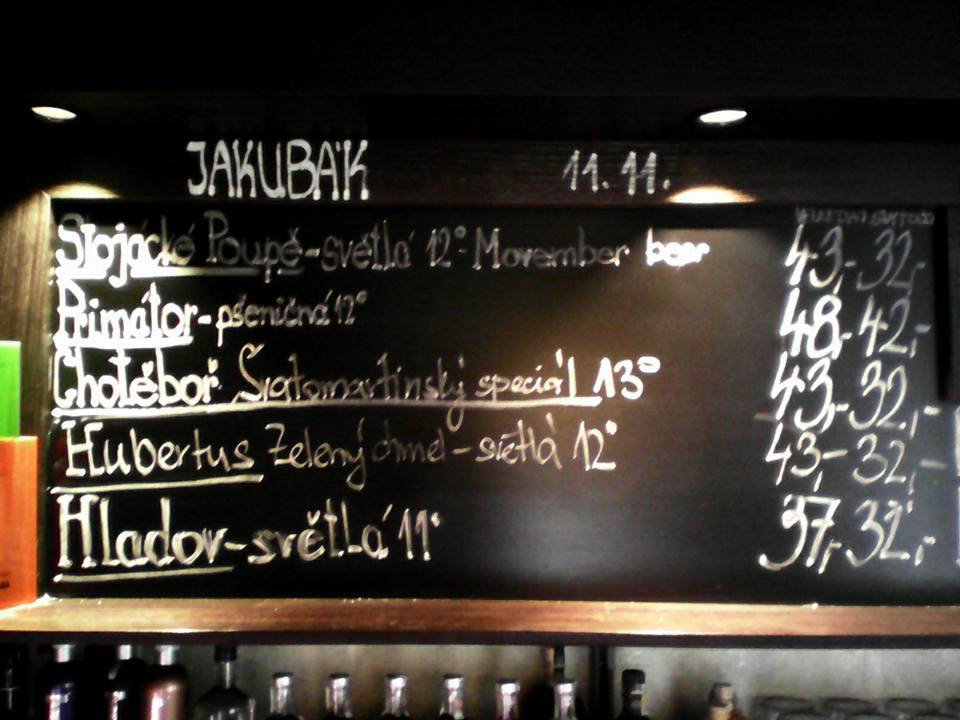 JAKUBÁK 11.11.
Stojácké Poupě - světlá 12° Movember beer 43,- 32,-
Primátor - pšeničná 12° 48,- 42,-
Chotěboř Svatomartinský speciál 13° 43,- 32,-
Hubertus Zelený chmel - světlá 12° 43,- 32,-
Hladov - světlá 11° 37,- 32,-